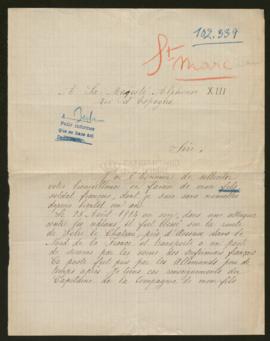 102.339
St Marc
A Sa Majesté Alphonse XIII
Roi d'Espagne
A Berlin
Pedir informes
Sire,
J'ai l'honneur de solliciter
votre bienveillance en faveur de mon fils
soldat français, dont je suis sans nouvelles
depuis bientôt un an.
Le 25 Août 1914 au soir, dans une attaque
contre les uhlans, il fut blessé sur la route
de près d' dans le
Nord de la France, et transporté à un poste
de secours par les soins des infirmiers français
Ce poste fut pris par les Allemands peu de
temps après. Je tiens ces renseignements du
Capitaine de la Compagnie de mon fils